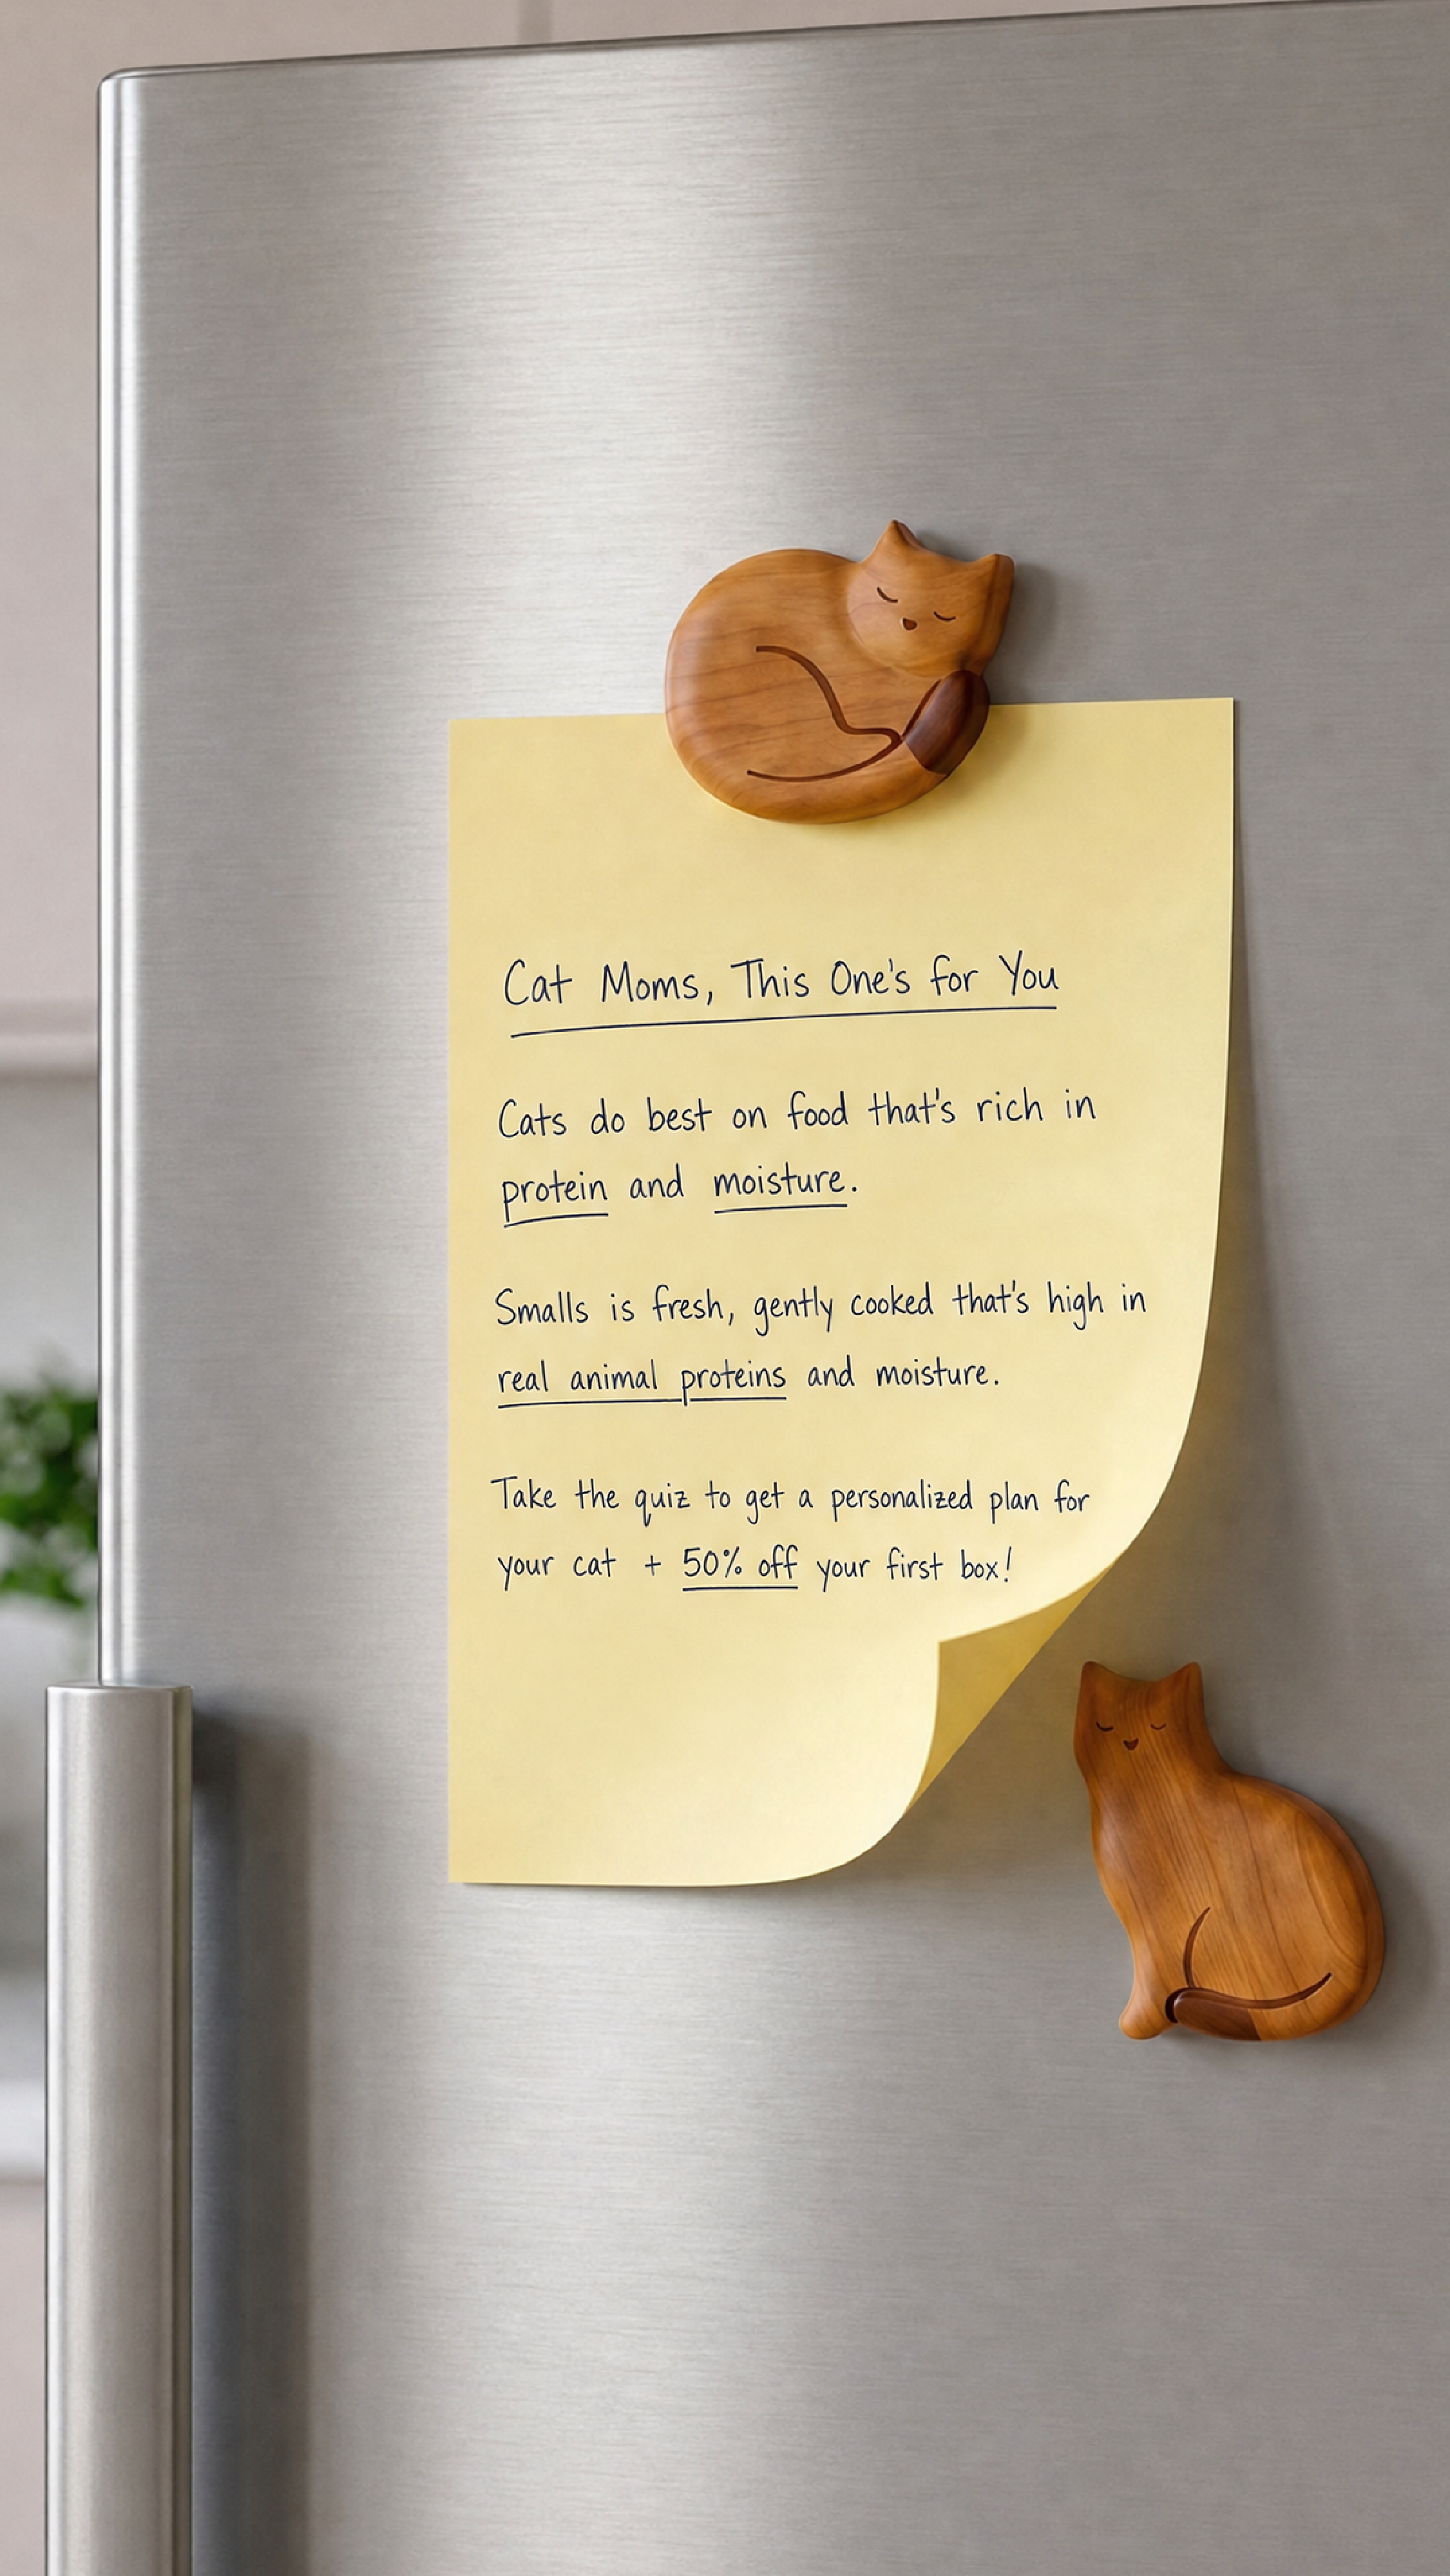 Cat Moms, This One's for You
Cats do best on food that's rich in
protein and moisture.
Smalls is fresh, gently cooked that's high in
real animal proteins and moisture.
Take the quiz to get a personalized plan for
your cat + 50% off your first box!